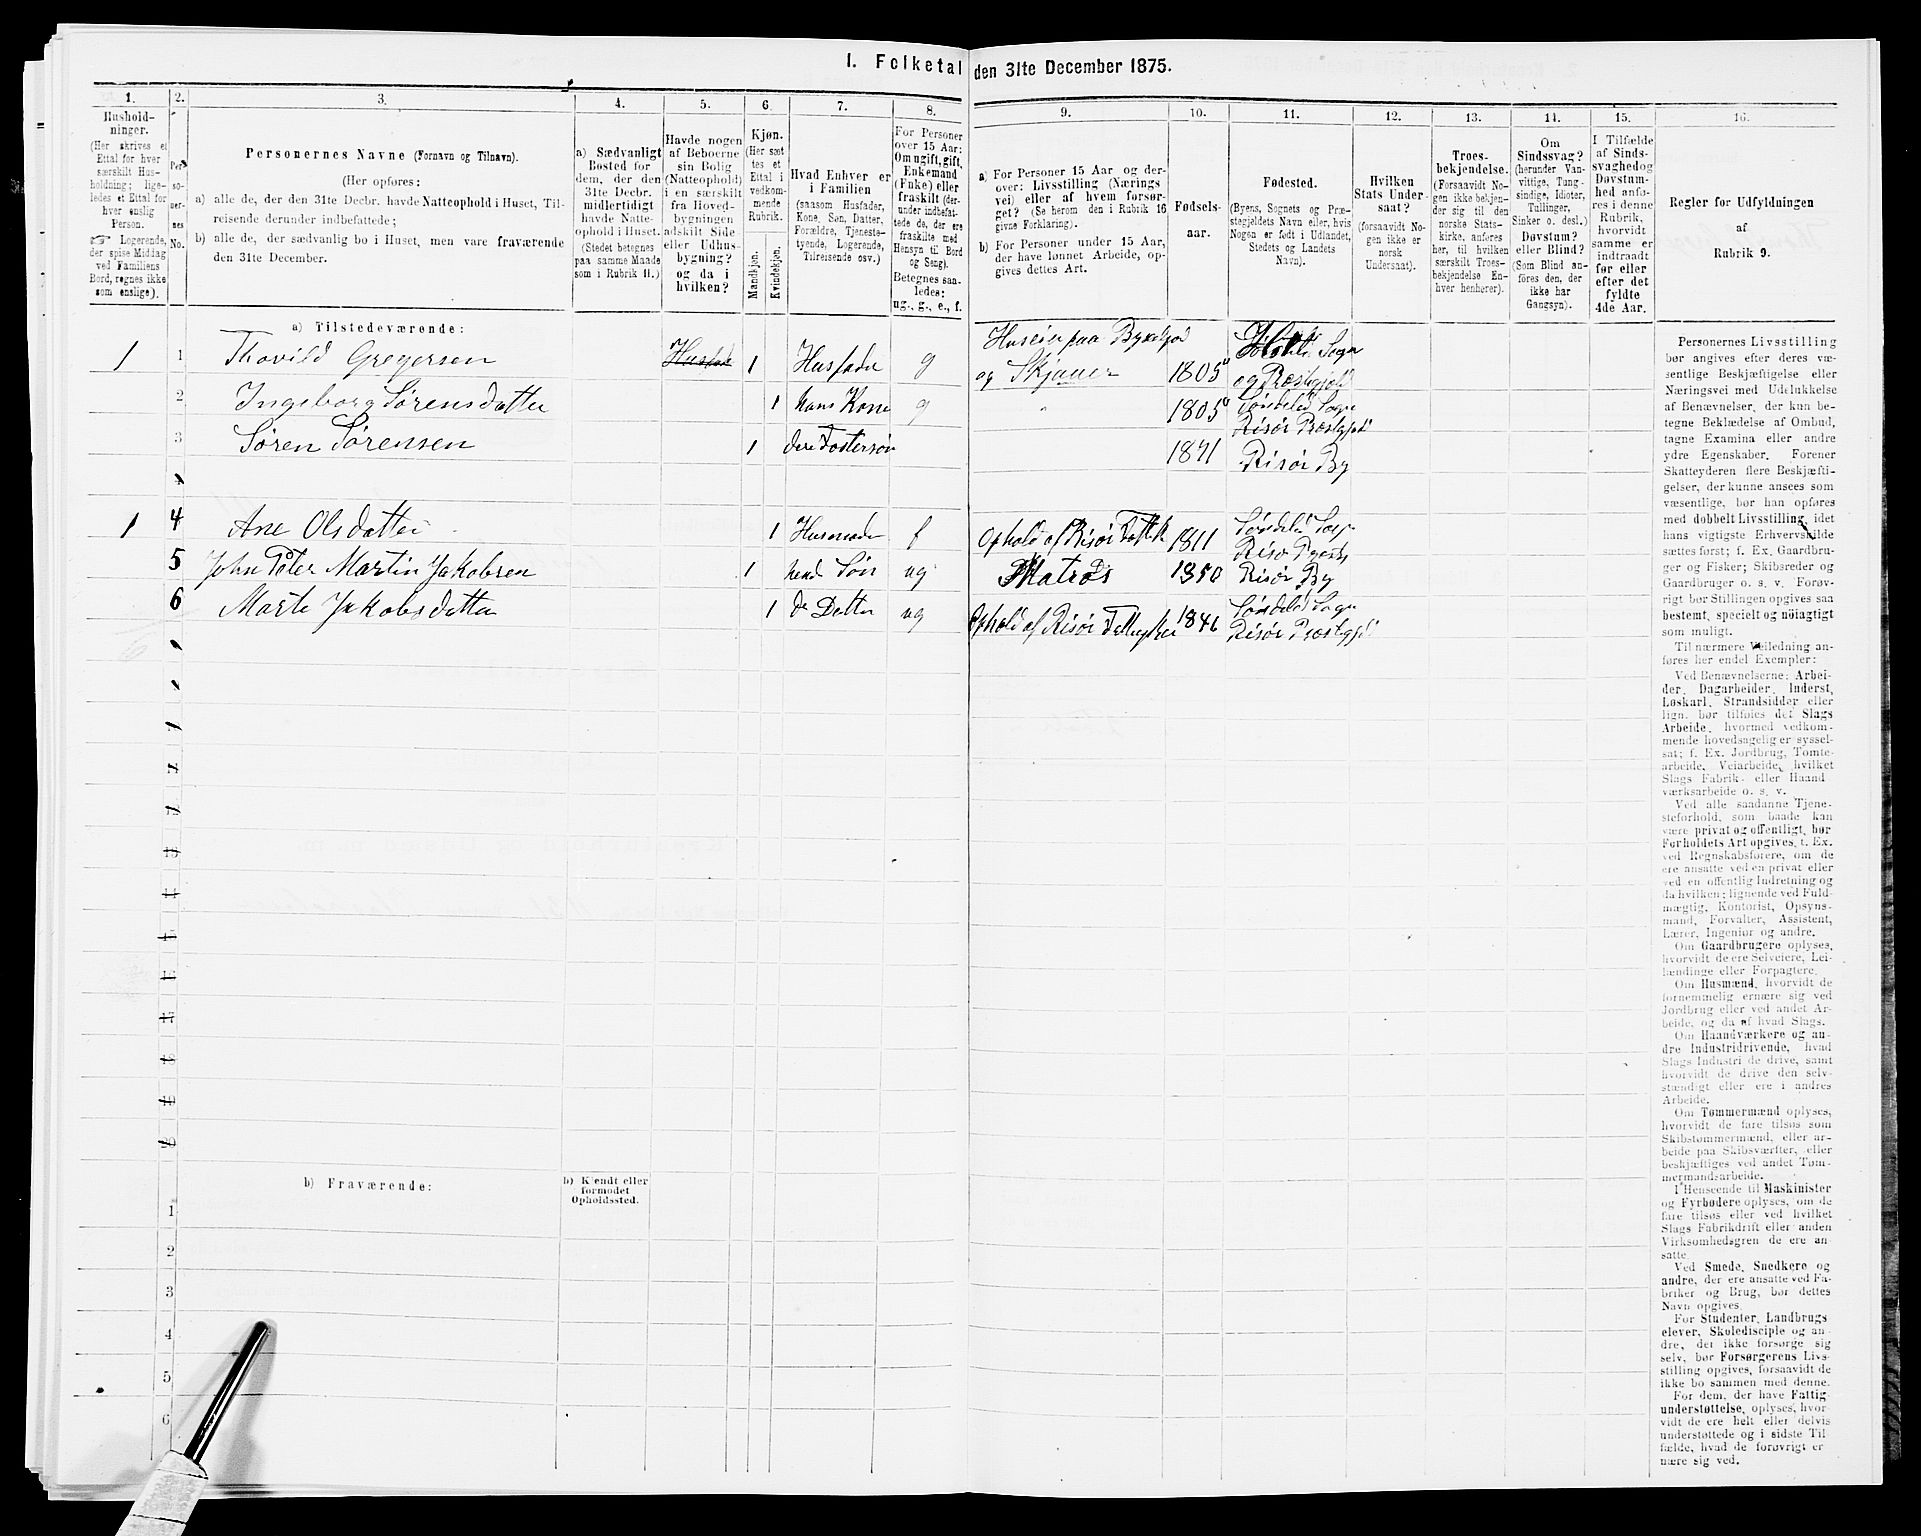 I. Folketal den 31te December 1875.
1. 2. 3. 4. 5. 6. 7. 8. 9. 10. 11. 12. 13. 14. 15. 16.
Hushold-
ninger.
(Her skrives et
Ettal for hver
særskilt Hus-
holdning; lige-
ledes et Ettal for
hver enslig
Person.
☞ Logerende,
der spise Middag
ved Familiens
Bord, regnes ikke
som enslige).
Per-
so-
ner-
nes
No.
Personernes Navne (Fornavn og Tilnavn).
(Her opføres:
a) alle de, der den 31te Decbr. havde Natteophold i Huset, Til-
reisende derunder indbefattede;
b) alle de, der sædvanlig bo i Huset, men vare fraværende
den 31te December.
a) Sædvanligt
Bosted for
dem, der den
31te Decbr.
midlertidigt
havde Natte-
ophold i Huset.
(Stedet betegnes
paa samme Maade
som i Rubrik 11.)
Havde nogen
af Beboerne
sin Bolig
(Natteophold)
i en særskilt
fra Hoved-
bygningen
adskilt Side-
eller Udhus-
bygning?
og da i
hvilken?
Kjøn.
(Her sæt-
tes et
Ettal i
vedkom-
mende
Rubrik.
Mandkjøn.
Kvindekjøn.
Hvad Enhver er
i Familien
(saasom Husfader,
Kone, Søn, Datter,
Forældre, Tjeneste-
tyende, Logerende,
Tilreisende osv.)
For Personer
over 15 Aar:
Om ugift, gift,
Enkemand
(Enke) eller
fraskilt (der-
under indbefat-
tede de, der ere
fraskilte med
Hensyn til Bord
og Seng).
Betegnes saa-
ledes:
ug., g., e., f.
a) For Personer 15 Aar og der-
over: Livsstilling (Nærings
vei) eller af hvem forsør-
get? (Se herom den i Rubrik 16
givne Forklaring).
b) For Personer under 15 Aar,
der have lønnet Arbeide, op-
gives dettes Art.
Fødsels-
aar.
Fødested.
(Byens, Sognets og Præ-
stegjeldets Navn eller, hvis
Nogen er født i Udlandet,
Stedets og Landets
Navn).
Hvilken
Stats Under-
saat?
(forsaavidt No-
gen ikke er
norsk
Undersaat).
Troes-
bekjendelse.
(Forsaavidt No-
gen ikke bekjen-
der sig til den
norske Stats-
kirke, anføres
her, til hvilken
særskilt Troes-
bekjendelse En-
hver henhører).
Om
Sindssvag?
(herunder Van-
vittige, Tung-
sindige, Idioter,
Tullinger,
Sinker o. desl.)
Døvstum?
eller Blind?
(Som Blind an-
føres den, der
ikke har
Gangsyn).
I Tilfælde
af Sinds-
svaghed og
Døvstum-
hed anfø-
res i denne
Rubrik,
hvorvidt
samme er
indtraadt
før eller
efter det
fyldte
4de Aar.
Regler for Udfyldningen
af
Rubrik 9.
a) Tilstedeværende:
1 1 Thovild Gregersen Husfad 1 Husfader g Huseier paa Byxelfjd og Skjauer 1805 Sogn og Præstegjeld
2 Ingeborg Sørensdatter 1 hans Kone g " 1805 Søndeled Sogn Risør Præstegjeld
3 Søren Sørensen 1 dere Fostersøn 1871 Risør By
4
1 4 Ane Olsdatter 1 Husmoder f Ophold af Risør 1811 Søndeled Sogn Risør
5 John Peter Martin Jakobsen 1 hend Søn ug Matros 1850 Risør By
6 Marte Jakobsdatter 1 do Datter ug Ophold af Risør 1846 Søndeled Sogn Risør Præstegjeld
b) Fraværende:
b) Kjendt eller
formodet
Opholdssted.
1
2
3
4
5
6
Personernes Livsstilling
bør angives efter deres væ-
sentlige Beskjæftigelse eller
Næringsvei med Udelukkelse
af Benævnelser, der kun be-
tegne Beklædelse af Ombud,
tagne Examina eller andre
ydre Egenskaber. Forener
Skatteyderen flere Beskjæfti-
gelser, der kunne ansees som
væsentlige, bør han opføres
med dobbelt Livsstilling, idet
hans vigtigste Erhvervskilde
sættes først; f. Ex. Gaardbru-
ger og Fisker; Skibsreder og
Gaardbruger o. s. v. Forøv-
rigt bør Stillingen opgives saa
bestemt, specielt og nøiagtigt
som muligt.
Til nærmere Veiledning an-
føres her endel Exempler:
Ved Benævnelserne: Arbei-
der, Dagarbeider, Inderst,
Løskarl, Strandsidder eller
lign. bør tilføies det Slags
Arbeide, hvormed vedkom-
mende hovedsagelig er syssel-
sat; f. Ex. Jordbrug, Tomte-
arbeide, Veiarbeide, hvilket
Slags Fabrik- eller Haand-
værksarbeide o. s. v.
Ved alle saadanne Tjene-
steforhold, som baade kan
være privat og offentligt, bør
Forholdets Art opgives, f. Ex.
ved Regnskabsførere, om de
ere ansatte ved en privat eller
ved en offentlig Indretning og
da hvilken; lignende ved Fuld-
mægtig, Kontorist, Opsyns-
mand, Forvalter, Assistent,
Lærer, Ingeniør og andre.
Om Gaardbrugere oplyses,
hvorvidt de ere Selveiere, Lei-
lændinge eller Forpagtere.
Om Husmænd, hvorvidt de
fornemmelig ernære sig ved
Jordbrug eller ved andet Ar-
beide, og da af hvad Slags.
Om Haandværkere og an-
dre Industridrivende, hvad
Slags Industri de drive, samt
hvorvidt de drive den selv-
stændigt eller ere i andres
Arbeide.
Om Tømmermænd oplyses,
hvorvidt de fare tilsøs som
Skibstømmermænd, eller ar-
beide paa Skibsværfter, eller
beskjæftiges ved andet Tøm-
mermandsarbeide.
I Henseende til Maskinister
og Fyrbødere oplyses, om de
fare tilsøs eller ved hvilket
Slags Fabrikdrift eller anden
Virksomhedsgren de ere an-
satte.
Ved Smede, Snedkere og
andre, der ere ansatte ved Fa-
briker og Brug, bør dettes
Navn opgives.
For Studenter, Landbrugs
elever, Skoledisciple og an-
dre, der ikke forsørge sig
selv, bør Forsørgerens Livs-
stilling opgives, forsaavidt de
ikke bo sammen med denne.
For dem, der have Fattig-
understøttelse, oplyses, hvor-
vidt de ere helt eller delvis
understøttede og i sidste Til-
fælde, hvad de forøvrigt er-
nære sig ved.